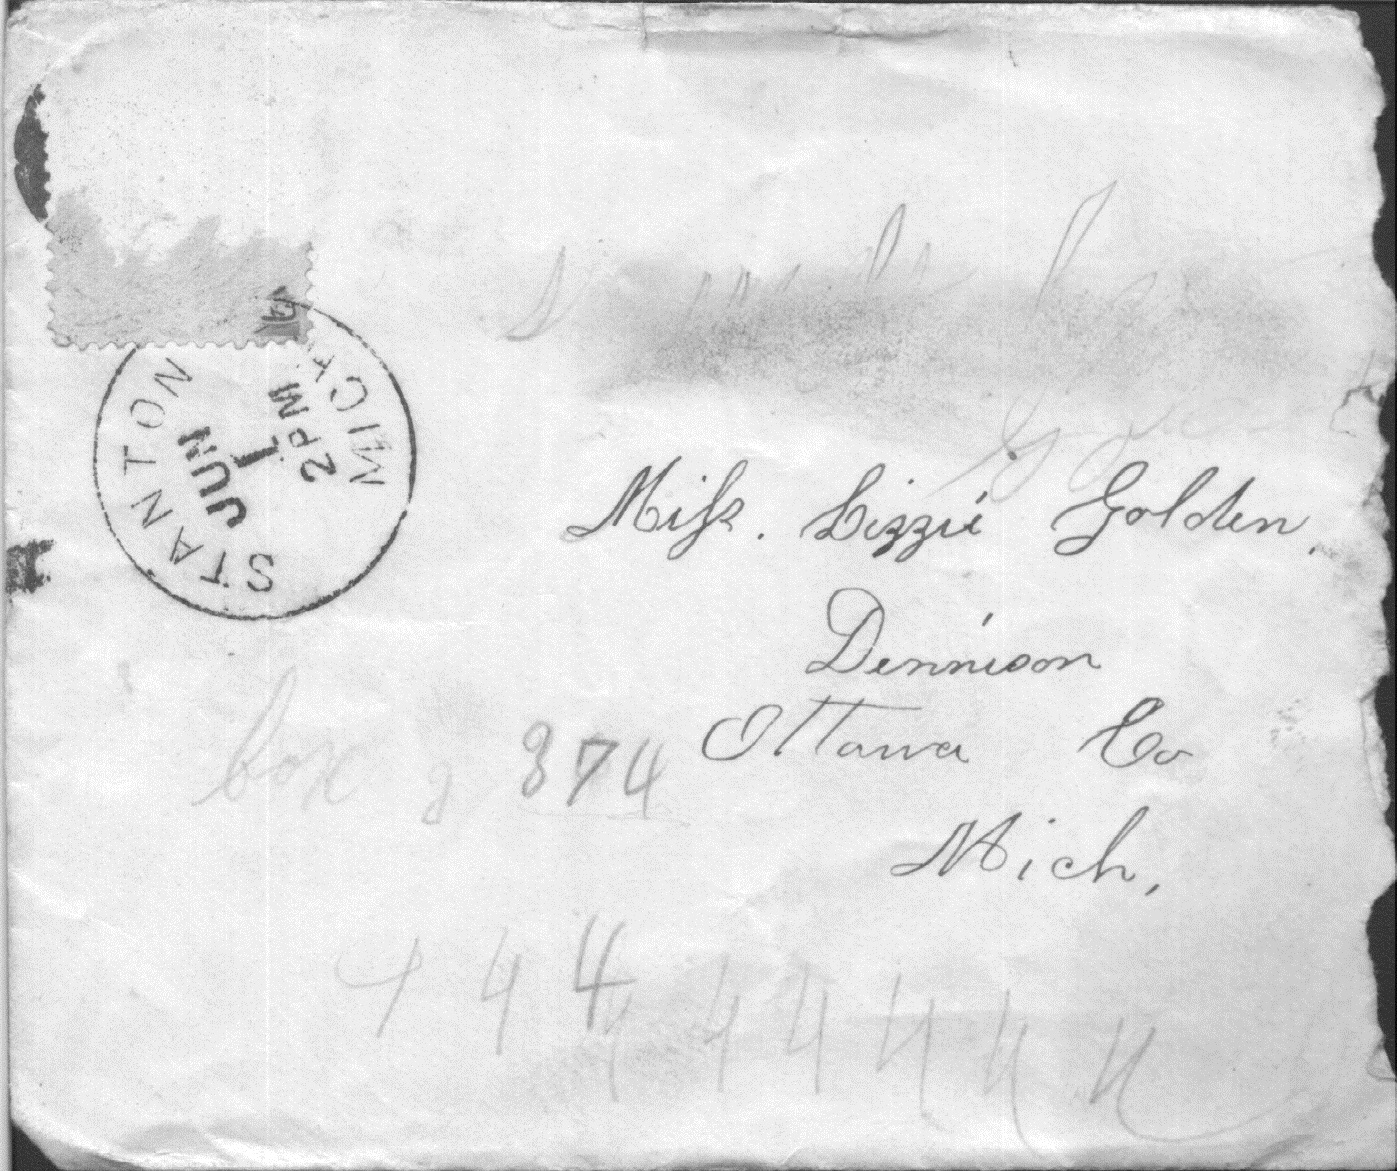 STANTON MICH
JUN
1
2 PM
Miss. Lizzie Golden,
Dennison
Ottawa Co
Mich,
box 874
4 4 4 4 4 4 4 4